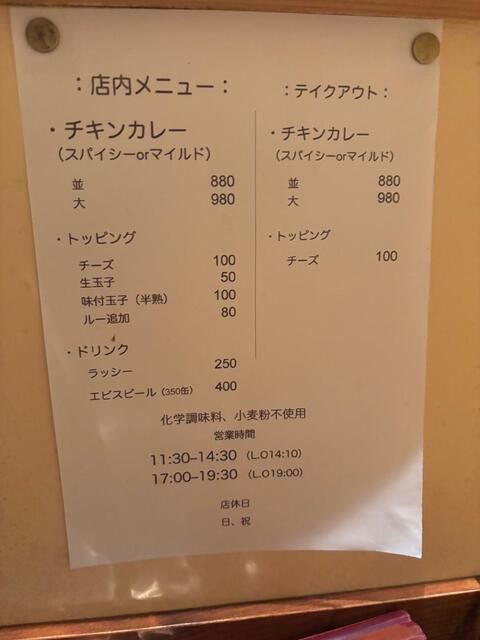 ：店内メニュー：
・チキンカレー
（スパイシーorマイルド）
並 880
大 980
・トッピング
チーズ 100
生玉子 50
味付玉子（半熟） 100
ルー追加 80
・ドリンク
ラッシー 250
エビスビール（350缶） 400
：テイクアウト：
・チキンカレー
（スパイシーorマイルド）
並 880
大 980
・トッピング
チーズ 100
化学調味料、小麦粉不使用
営業時間
11:30–14:30（L.O14:10）
17:00–19:30（L.O19:00）
店休日
日、祝